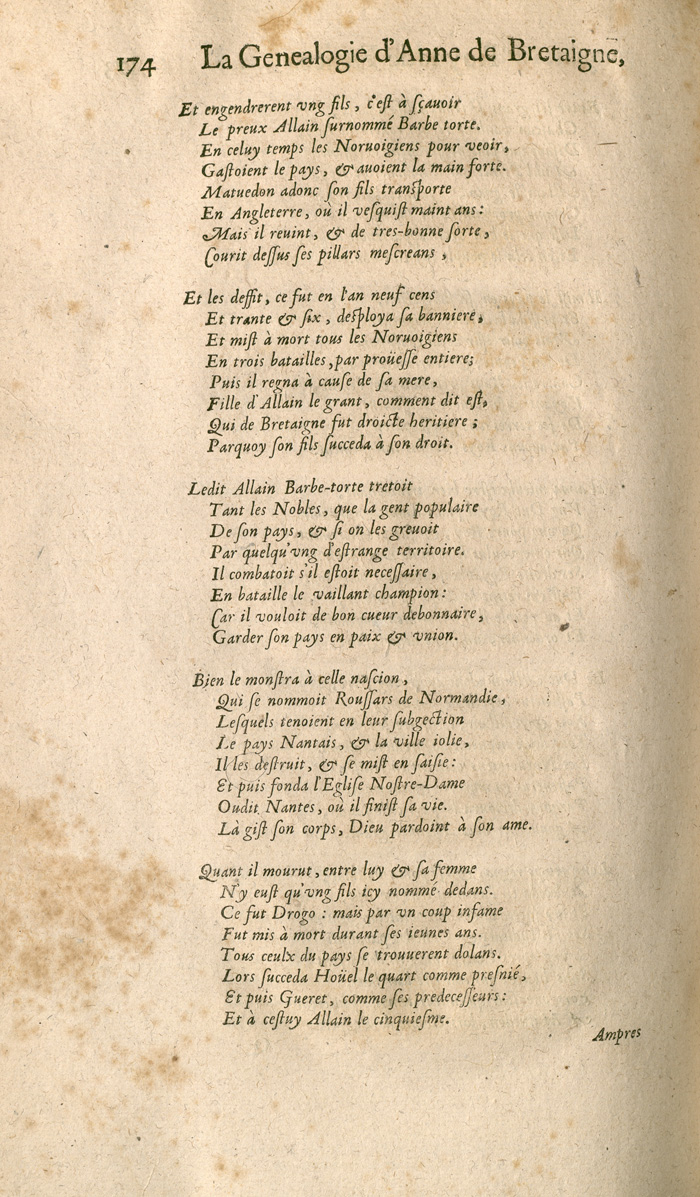 174 La Genealogie d'Anne de Bretaigne,
Et engendrerent vng fils, c'eſt à ſçauoir
Le preux Allain ſurnommé Barbe torte.
En celuy temps les Noruoigiens pour veoir,
Gaſtoient le pays, & auoient la main forte.
Matuedon adonc ſon fils tranſporte
En Angleterre, où il veſquiſt maint ans:
Mais il reuint, & de tres-bonne ſorte,
Courit deſſus ſes pillars meſcreans,
Et les deffit, ce fut en l'an neuf cens
Et trante & ſix, deſploya ſa banniere,
Et miſt à mort tous les Noruoigiens
En trois batailles, par proüeſſe entiere;
Puis il regna à cauſe de ſa mere,
Fille d'Allain le grant, comment dit eſt,
Qui de Bretaigne fut droicte heritiere;
Parquoy ſon fils ſucceda à ſon droit.
Ledit Allain Barbe-torte tretoit
Tant les Nobles, que la gent populaire
De ſon pays, & ſi on les greuoit
Par quelqu'vng d'eſtrange territoire.
Il combatoit s'il eſtoit neceſſaire,
En bataille le vaillant champion:
Car il vouloit de bon cueur debonnaire,
Garder ſon pays en paix & vnion.
Bien le monſtra à celle naſcion,
Qui ſe nommoit Rouſſars de Normandie,
Leſquels tenoient en leur ſubgection
Le pays Nantais, & la ville iolie,
Il les deſtruit, & ſe miſt en ſaiſie:
Et puis fonda l'Egliſe Noſtre-Dame
Oudit Nantes, où il finiſt ſa vie.
Là giſt ſon corps, Dieu pardoint à ſon ame.
Quant il mourut, entre luy & ſa femme
N'y euſt qu'vng fils icy nommé dedans.
Ce fut Drogo: mais par vn coup infame
Fut mis à mort durant ſes ieunes ans.
Tous ceulx du pays ſe trouuerent dolans.
Lors ſucceda Hoüel le quart comme preſnié,
Et puis Gueret, comme ſes predeceſſeurs:
Et à ceſtuy Allain le cinquieſme.
Ampres